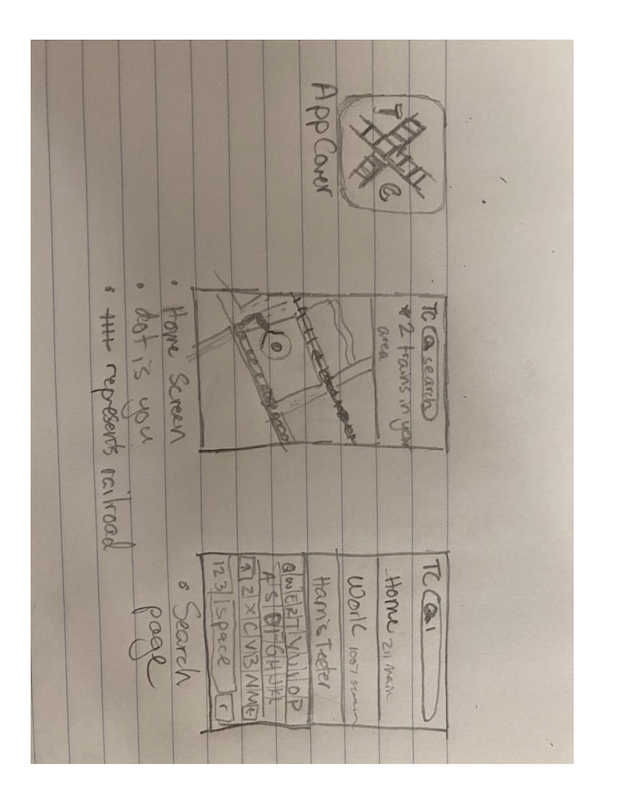 T
C
App Cover
TC search
* 2 trains in your
area
• Home Screen
• dot is you
• +++ represents railroad
TC
Home 211 main
Work
Harris Teeter
Q W E R T Y U I O P
A S D F G H
Z X C V B N M
123 space
• Search
page